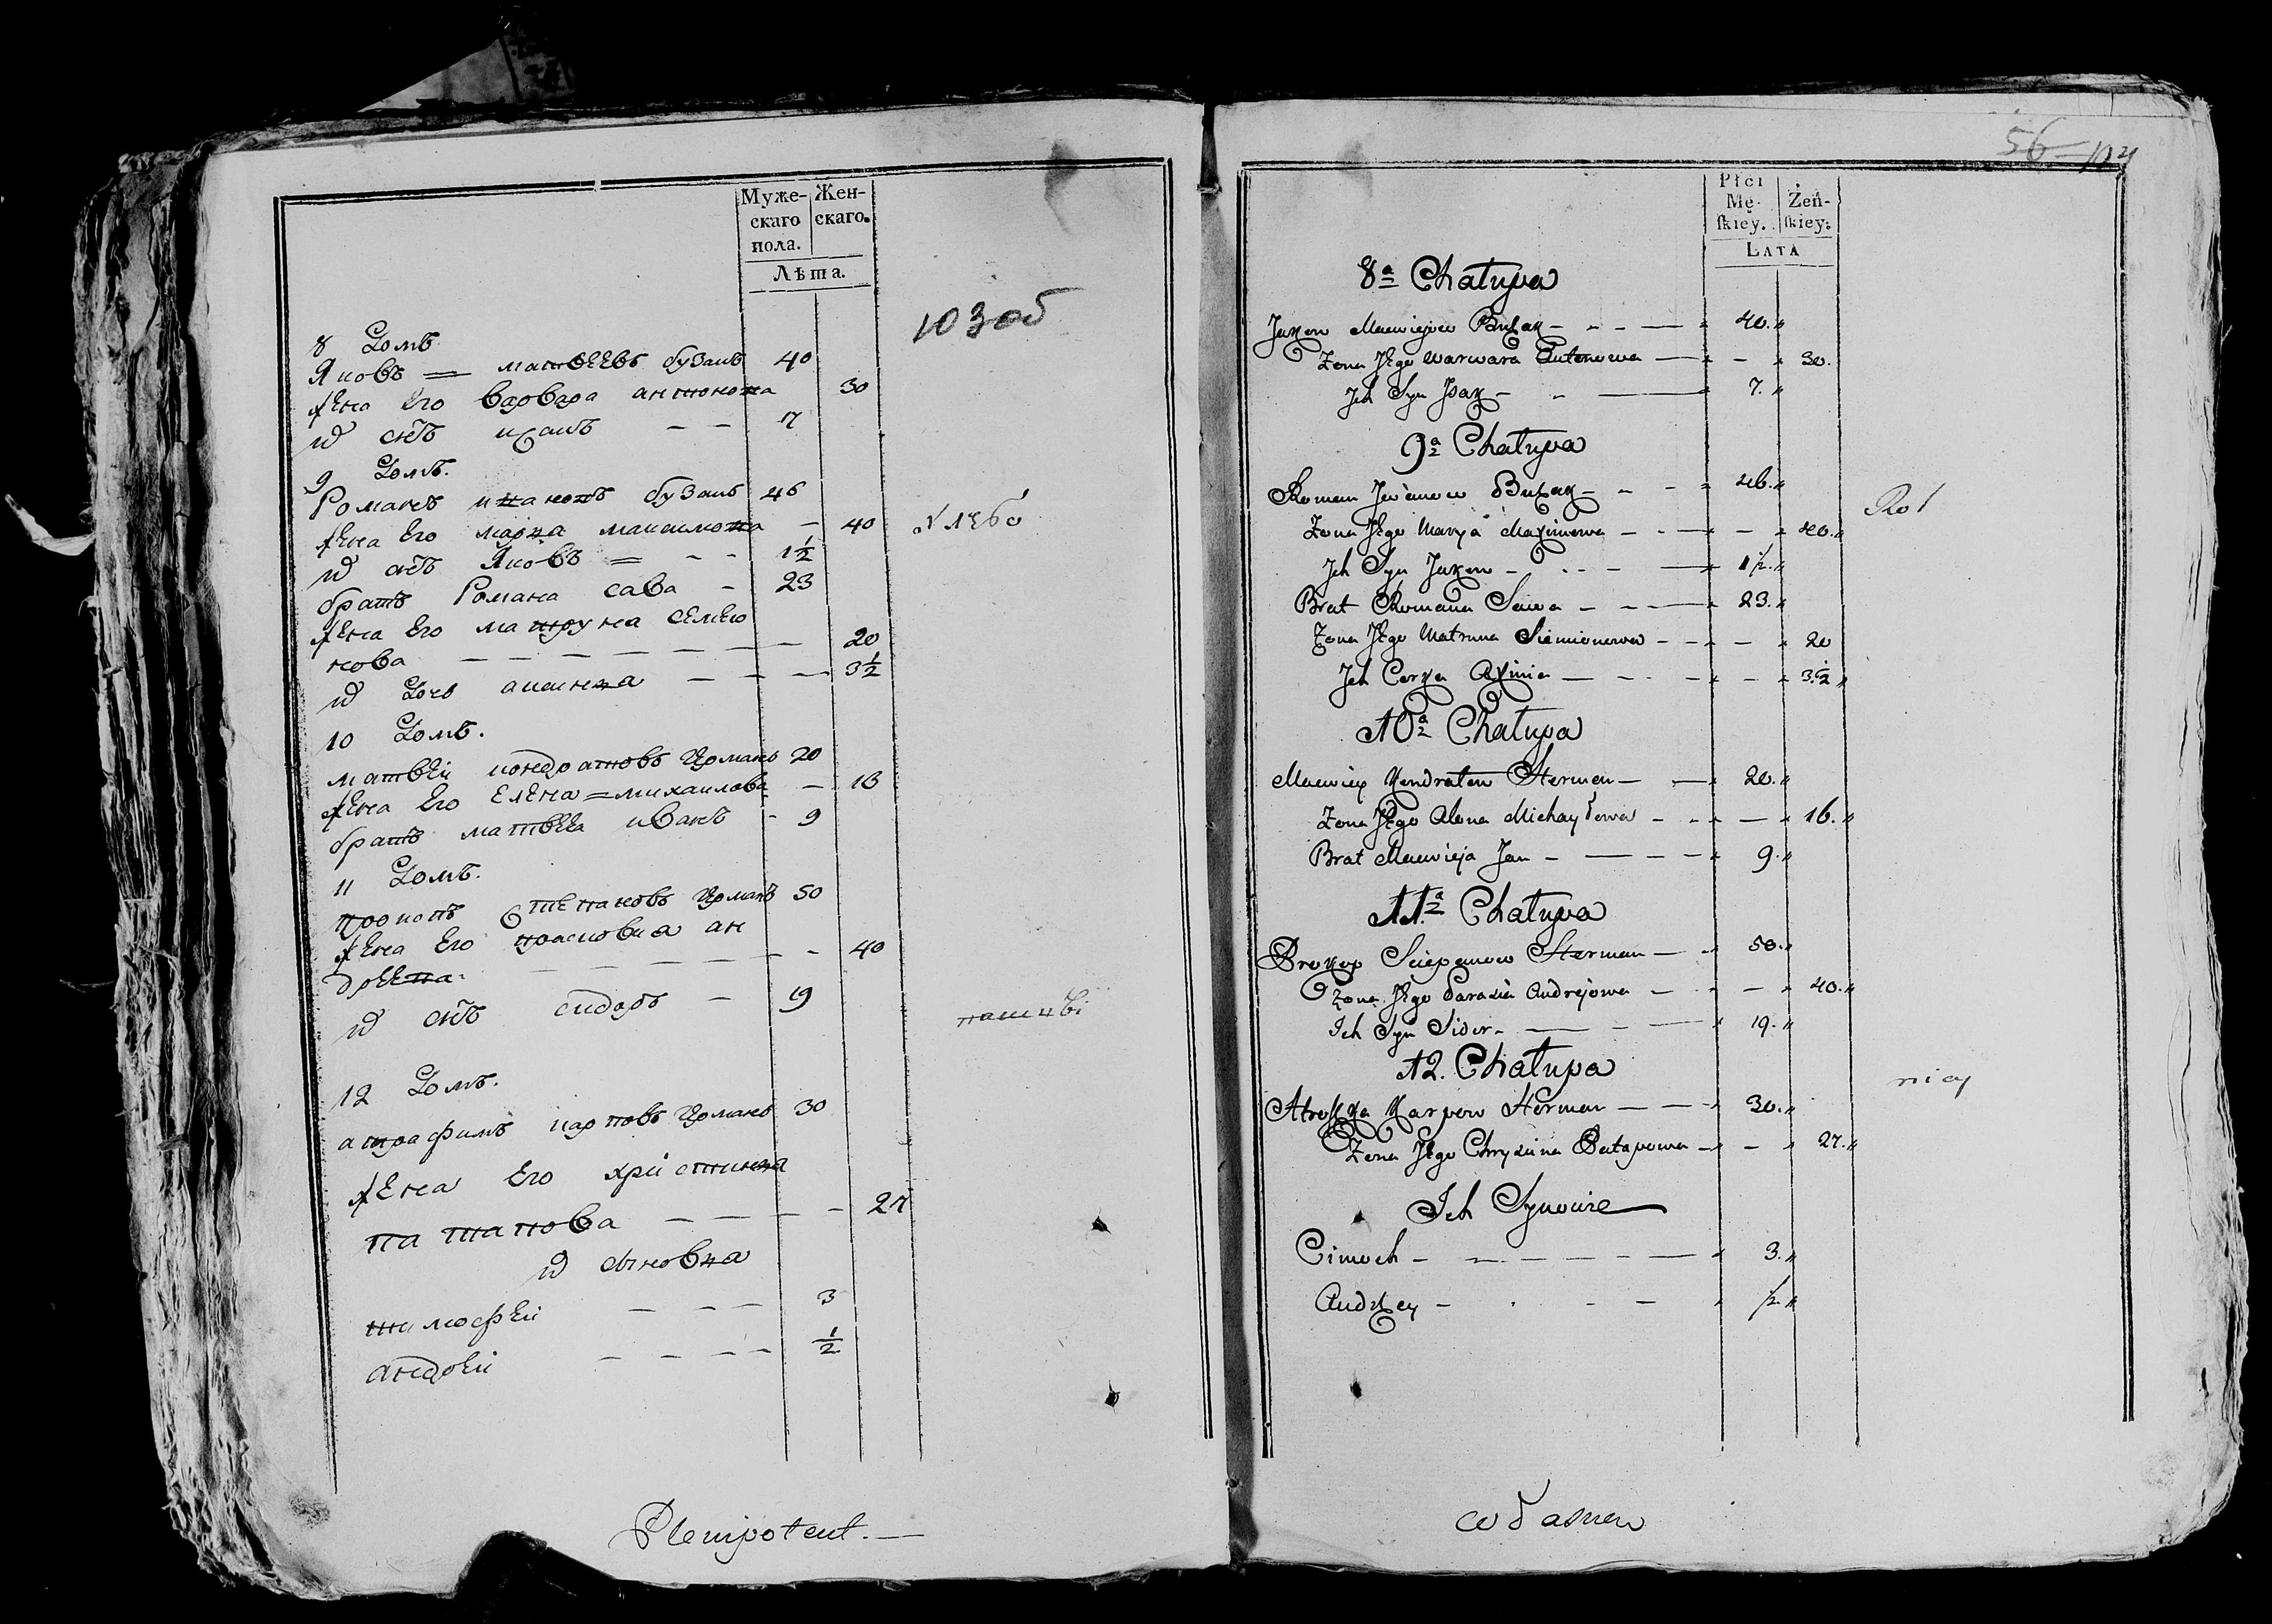 Муже-
скаго
пола.
Жен-
скаго.
Лѣта.
8 Домъ
Яковъ = матвеевъ бузакъ 40
жена его варвара антонова 30
их снъ исакъ — — 7
9 Домъ.
Романъ ивановъ бузакъ 46
жена его мария максимова — 40
их снъ Яковъ = — — 1½
братъ Романа сава — 23
жена его матруна семио
нова — — — — — — 20
их дочь аксиния — — — 3½
10 Домъ.
матвей кондратовъ Германъ 20
жена его елена = михаилова — 16
братъ матвея иванъ — 9
11 Домъ.
прокопъ степановъ Германъ 50
жена его прасковия ан
дреева — — — — — — 40
их снъ сидоръ — 19
12 Домъ.
атрофимъ карповъ Германъ 30
жена его християна
патапова — — — — 27
их сыновия
тимофей — — — 3
андрей — — — — ½
хлебо
пашцы
Plenipotent. —
56
Płci
Mę-
skiey.
Żeń-
skiey:
LATA
8a Chałupa
Jakow Maciejow Buzak — 40.
Zona Jego Warwara Antonowa — 30.
Ich Syn Isak — 7.
9a Chałupa
Roman Iwanow Buzak — 46.
Zona Jego Marya Maximowa — 40.
Ich Syn Jakow — 1½.
Brat Romana Sawa — 23.
Zona Jego Matruna Siemionowa — 20
Ich Corka Axinia — 3½
10a Chałupa
Maciey Kondratow Herman — 20.
Zona Jego Alena Michayłowa — 16.
Brat Macieja Jan — 9.
11a Chałupa
Prokop Sciepanow Herman — 50.
Zona Jego Parasia Andrejowa — 40.
Ich Syn Sidor — 19.
12. Chałupa
Karpow Herman — 30.
Zona Jego Chrystina Patapowa — 27.
Ich Synowie
Cimoch — 3.
Andrzey — ½
Rol
nicy